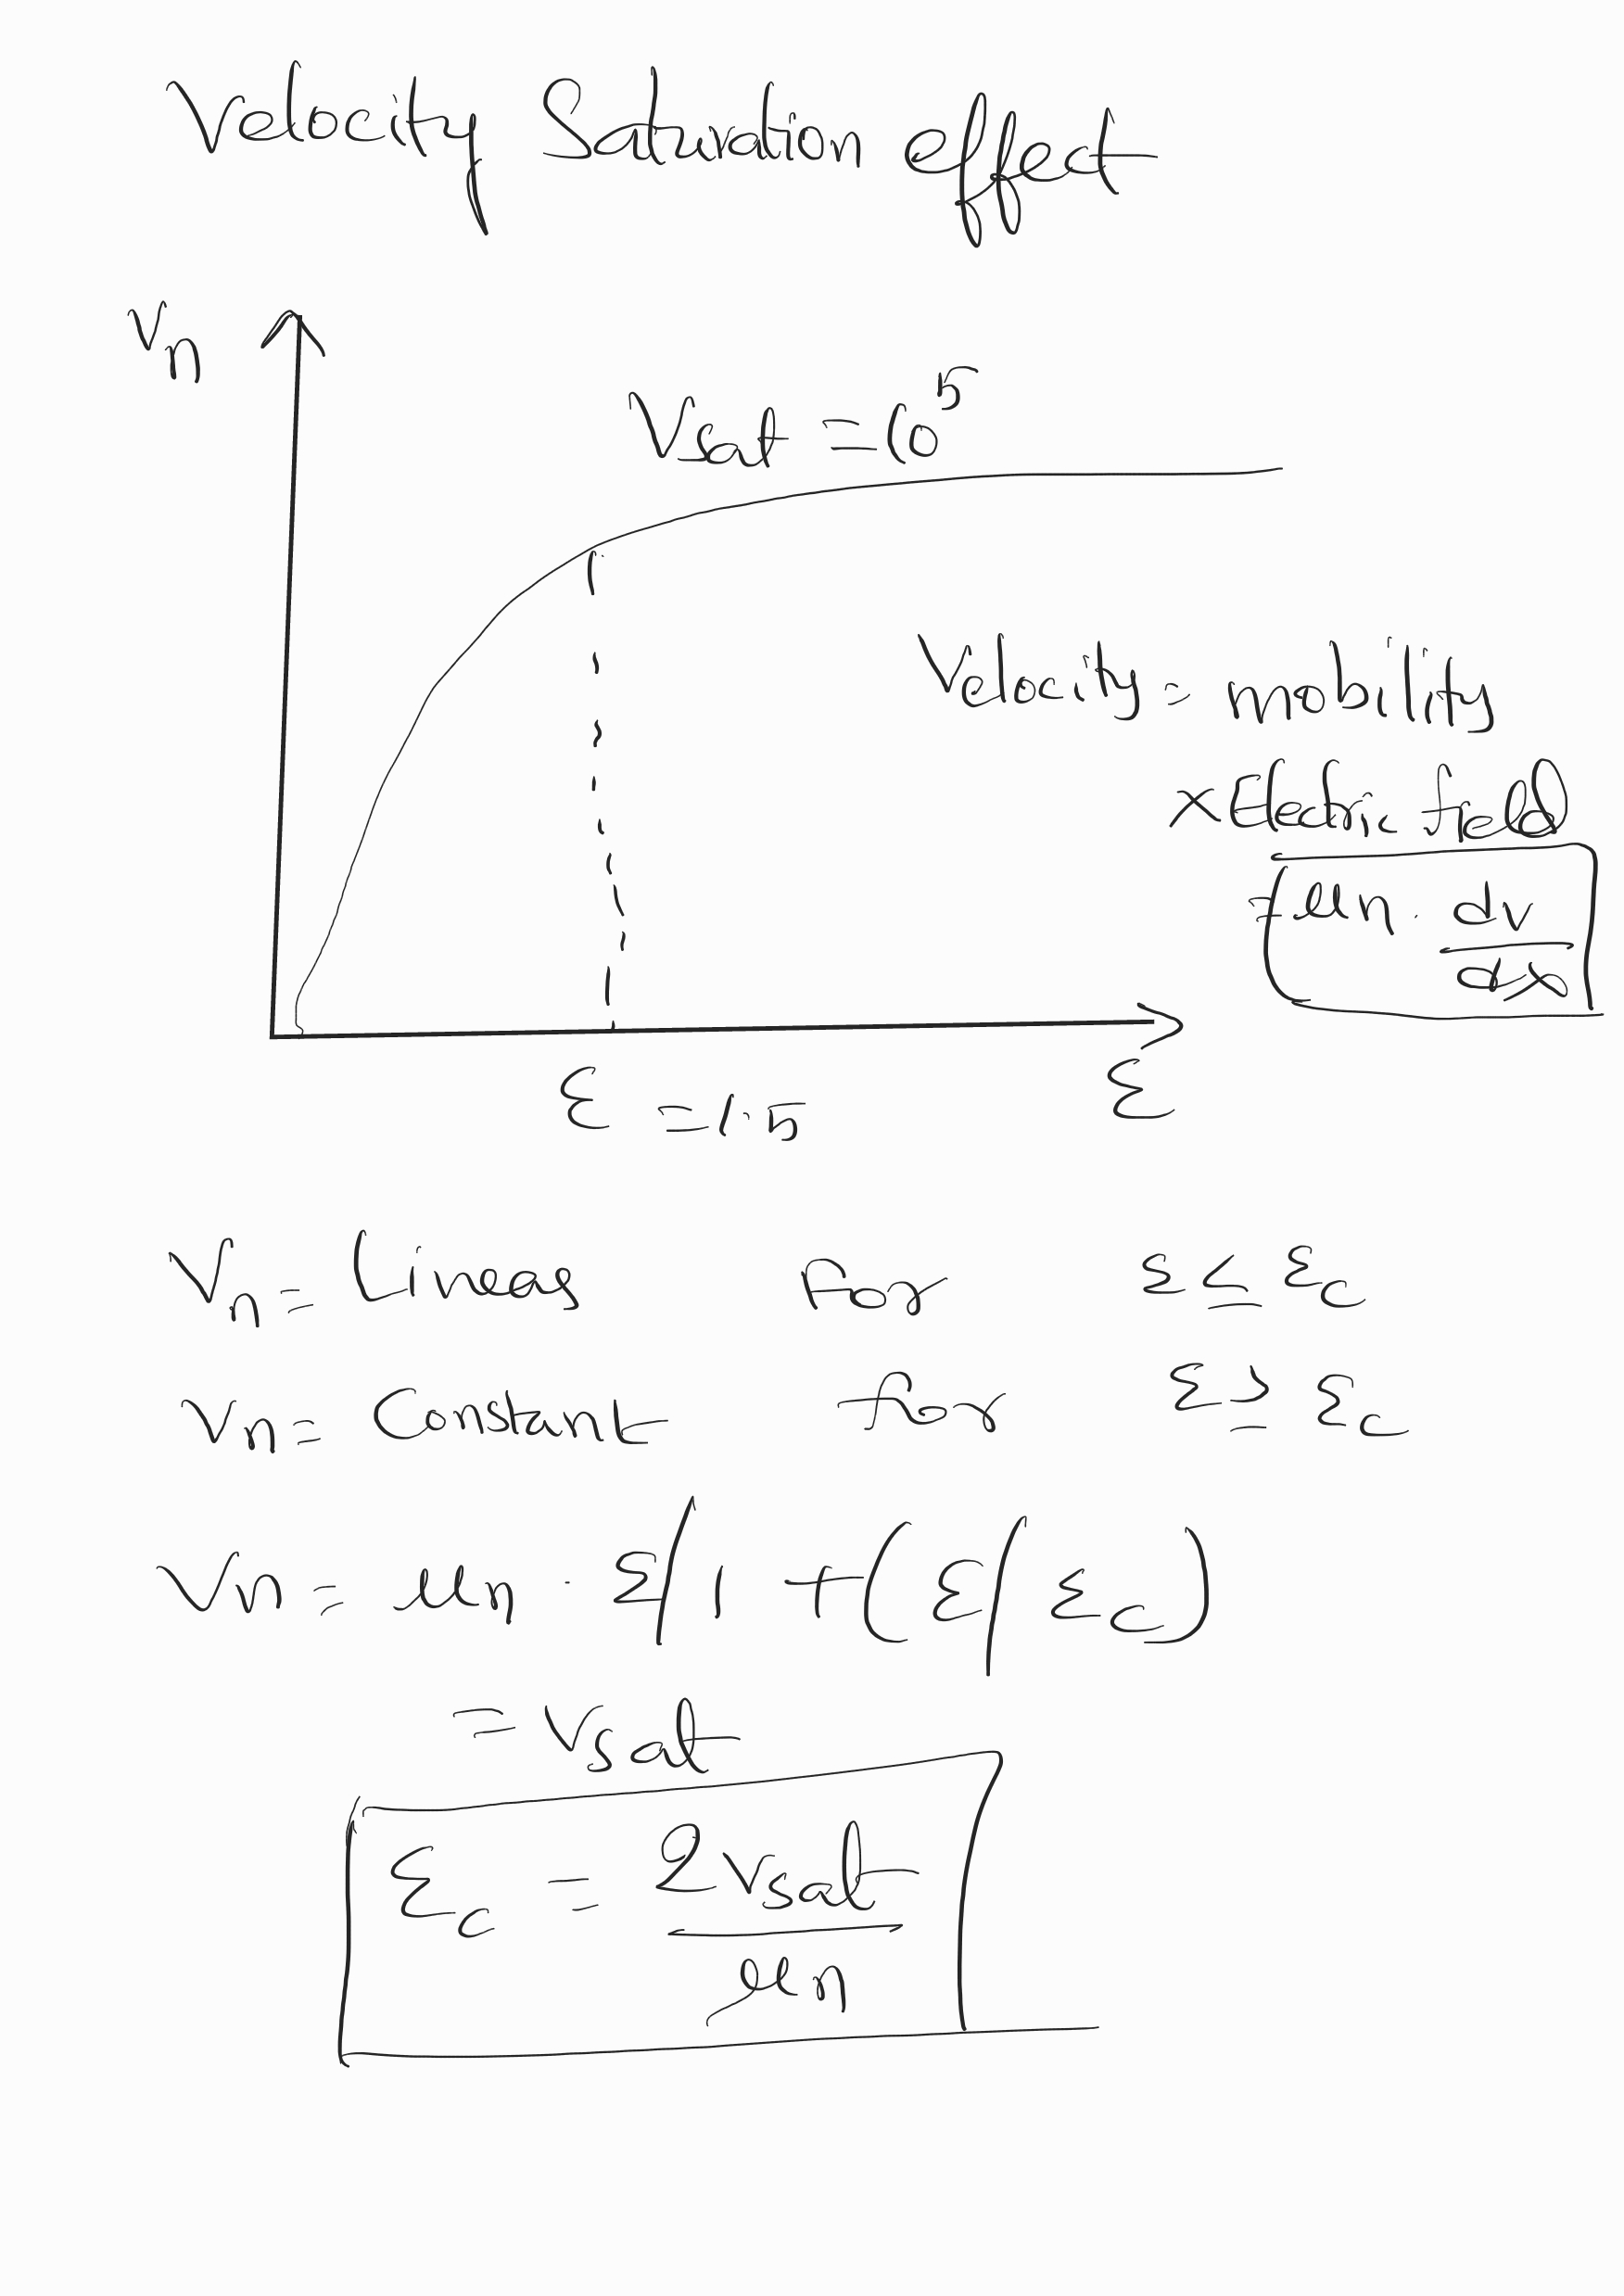 Velocity Saturation effect
Vn
Vsat = 10^5
Velocity = mobility
× Electric field
= μn . dv/dx
ξ = 1.5
ξ
Vn = Linear for ξ ≤ ξc
Vn = Constant for ξ ≥ ξc
Vn = μn · ξ/1 + (ξ/ξc)
= Vsat
ξc = 2Vsat/μn